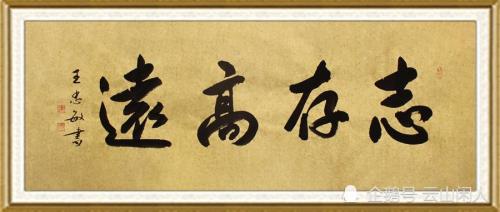 志存高遠
王忠敏書
企鹅号 云山闲人